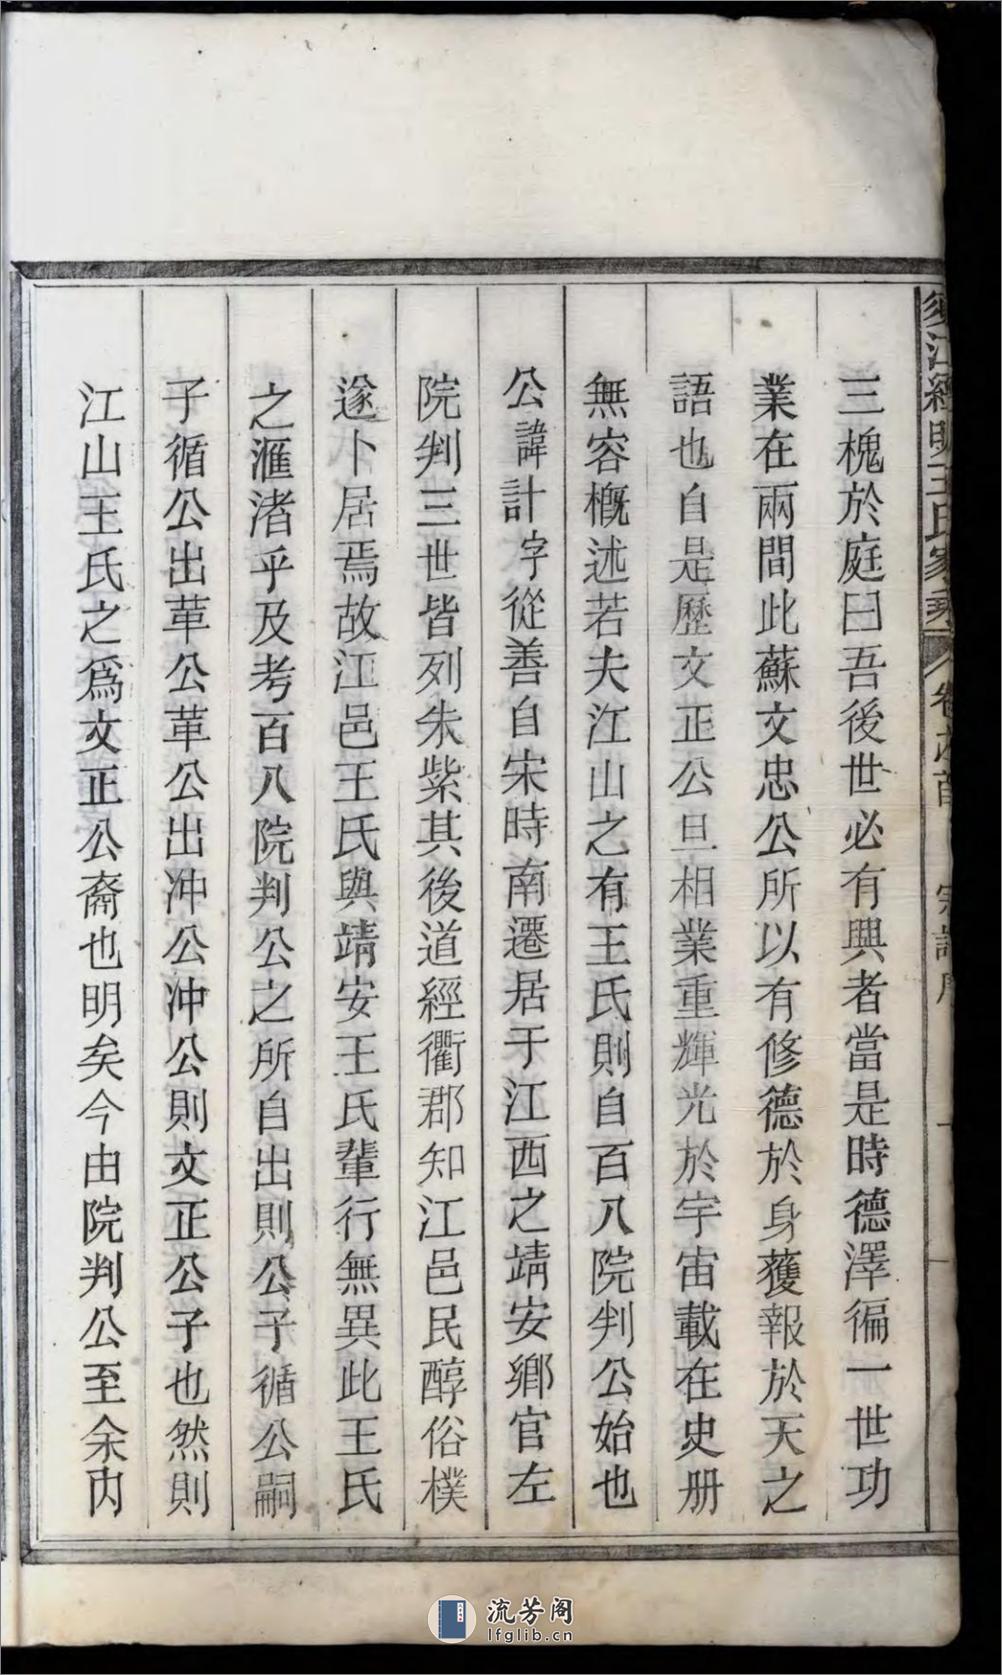 三槐於庭曰吾後世必有興者當是時德澤徧一世功
業在兩間此蘇文忠公所以有修德於身獲報於天之
語也自是歷文正公旦相業重輝光於宇宙載在史册
無容概述若夫江山之有王氏則自百八院判公始也
公諱計字從善自宋時南遷居于江西之靖安鄉官左
院判三世皆列朱紫其後道經衢郡知江邑民醇俗樸
遂卜居焉故江邑王氏與靖安王氏輩行無異此王氏
之滙渚乎及考百八院判公之所自出則公子循公嗣
子循公出革公革公出冲公冲公則文正公子也然則
江山王氏之爲文正公裔也明矣今由院判公至余内
流芳阁
lfglib.cn